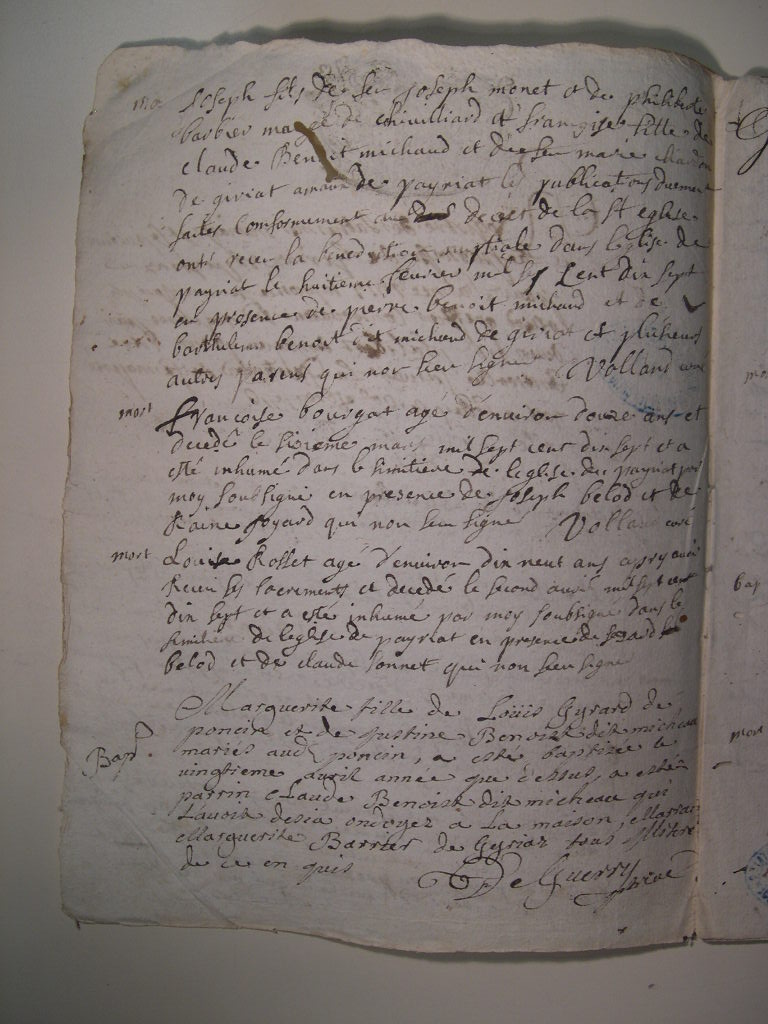 ma
Joseph fils de feu joseph monet et de philiberte
barbier de chivilliard et françoise fille de
claude Benoit michaud et de feu marie
De giriat de payriat les publications duement
faites Conformement au decret de la St eglise
ont receu la benediction nuptiale dans leglise de
payriat le huitieme février mil sept Cent dix sept
en presence de pierre benoit michaud et de
barthelemy benoit dit michaud de giriat et plusieurs
autres parens qui non sceu signe Volland curé
mort
françoise bourgat agé d'environ douze ans et
decedé le sixieme mars mil sept cent dix sept et a
esté inhumé dans le simitiere de leglise de payriat par
moy soubsigné en presence de joseph belod et de
Raine joyard qui non sceu signé Volland curé
mort
Louise Rosset agé d'environ dix neuf ans apres avoir
Receu ses sacrements et decedé le second avril mil sept cent
dix sept et a esté inhumé par moy soubsigné dans le
simitiere de leglise de payriat en presence de
belod et de claude qui non sceu signé
Bapt.
Marguerite fille de Loüis Gyrard de
poncin et de Justine Benoist dit micheau
mariés aud. poncin, a esté baptizée le
vingtieme avril année que dessus, a esté
parrin Claude Benoist dit micheau qui
Lavoit desia ondoyez a la maison, Marraine
Marguerite Barrier de Gyriaz tous illitere
de ce enquis
De Guerry
mort
bap
mort